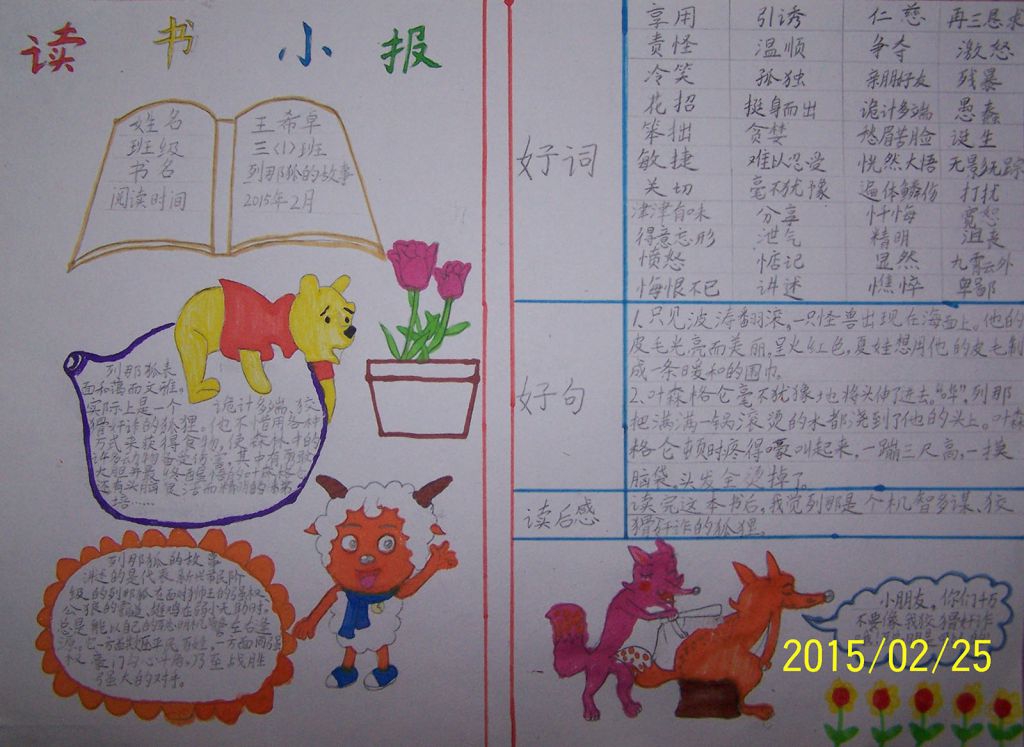 读书小报
姓名 王希卓
班级 三〈1〉班
书名 列那狐的故事
阅读时间 2015年2月
列那狐表
面和蔼而文雅。
实际上是一个 诡计多端,狡
猾奸诈的狐狸。他也不惜用各种
方式来获得食物,使森林中的
列那狐的故事
讲述的是代表新兴市民阶
级的列那狐在面对狮王的强权
总是能以自己的
强大的对手。
好词
享用 引诱 仁慈 再三恳求
责怪 温顺 争夺 激怒
冷笑 孤独 亲朋好友 残暴
花招 挺身而出 诡计多端 愚蠢
笨拙 贪婪 愁眉苦脸 诞生
敏捷 难以忍受 恍然大悟 无影无踪
关切 毫不犹豫 遍体鳞伤 打扰
津津自味 分享 忏悔 宽恕
得意忘形 泄气 精明 沮丧
愤怒 惦记 显然 九霄云外
悔恨不已 讲述 憔悴 卑鄙
好句
1.只见波涛翻滚,一只怪兽出现在海面上。他的
皮毛光亮而美丽,呈火红色,夏娃想用他的皮毛制
成一条暖和的围巾。
2.叶森格仑毫不犹豫地将头伸了进去。“哗”,列那
把满满一锅滚烫的水都浇到了他的头上。叶森
格仑顿时疼得嚎叫起来,一蹦三尺高,一摸
脑袋,头发全烫掉了。
读后感
读完这本书后,我觉列那是个机智多谋、狡
猾奸诈的狐狸。
小朋友,你们千万
不要像我狡猾奸诈
2015/02/25